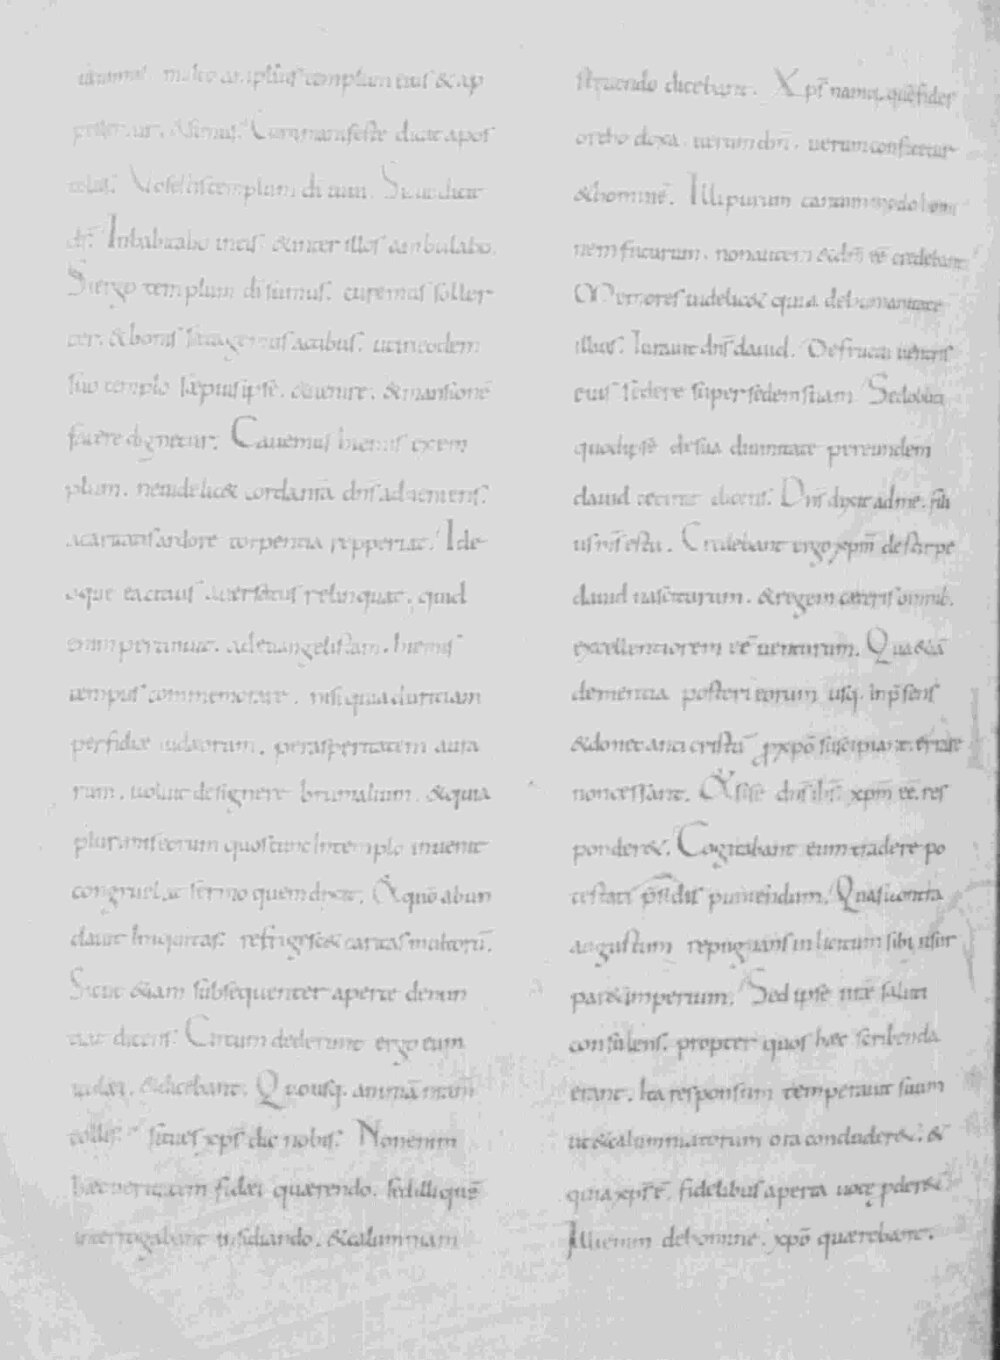 multo amplius templum eius & ap
pellemur, & simus. Cum manifeste dicit apos
tolus. Vos estis templum dī uiui. Sicut dicit
dr̄. Inhabitabo in eis & inter illos ambulabo.
Si ergo templum dī sumus. curemus soller
ter. & bonis satagemus actibus. ut in eodem
suo templo sæpius ipse. & uenire. & mansionē
facere dignetur. Caueamus hiemis exem
plum. ne uidelic& corda nr̄a dn̄s adueniens.
a caritatis ardore torpentia repperiat. Ide
oque ea citius auersatus relinquat. quid
enim pertinuit. ad euangelistam. hiemis
tempus commemorare. nisi quia duritiam
perfidiæ iudæorum. per asperitatem aura
rum. uoluit designare brumalium. & quia
plurimis eorum quos tunc in templo inuenit
congruebat sermo quem dixit. Et quō abun
dauit iniquitas. refrigesc& caritas multorū.
Sicut &iam subsequenter aperte denun
tiat dicens. Circumdederunt ergo eum
iudæi. & dicebant. Quousq. animā nr̄am
tollis. si tu es xps̄ dic nobis. Non enim
hæc ueritatem fidei quærendo. sed illi quē
interrogabant insidiando. & calumniam
struendo dicebant. Xps̄ namq. quē fides
orthodoxa. uerum dm̄. uerum confitetur
& hominē. Illi purum tantummodo homi
nem futurum. non autem & dm̄ eē credebant.
Maiores uidelic& quia de humanitate
illius. Iurauit dn̄s dauid. De fructu uentris
eius sedere super sedem suam. Sed oblita
quod ipse de sua diuinitate per eundem
dauid cecinit dicens. Dn̄s dixit ad me. fili
us ms̄ es tu. Credebant ergo xpm̄ de stirpe
dauid nasciturum. & regem ceteris omnib.
excellentiorem eē uenturum. Qua &iā
dementia posteri eorum usq. in p̄sens
& donec anticristū pro xpō suscipiant. errare
non cessant. Et si se dn̄s ihs̄ xpm̄ eē. res
ponder&. Cogitabant eum tradere po
testati p̄sidis puniendum. Quasi contra
augustum repugnans inlicitum sibi usur
par& imperium. Sed ipse nr̄æ saluti
consulens. propter quos hæc scribenda
erant. Ita responsum temperauit suum
ut & calumniatorum ora concluder&. &
quia xps̄ ē. fidelibus aperta uoce pder&.
Illi enim de homine. xpō quærebant.